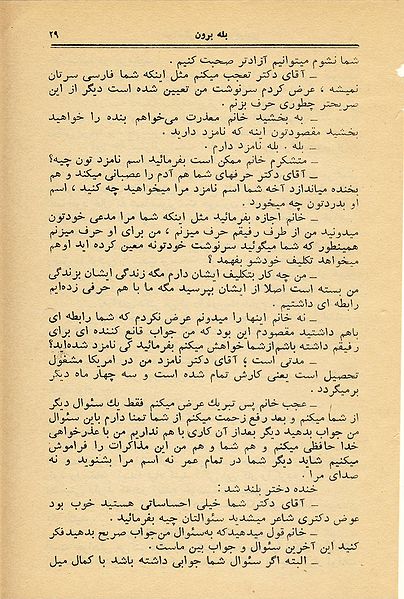 بله برون
۲۹
شما نشوم میتوانیم آزادتر صحبت کنیم .
ـ آقای دکتر تعجب میکنم مثل اینکه شما فارسی سرتان
نمیشه ، عرض کردم سرنوشت من تعیین شده است دیگر از این
صریحتر چطوری حرف بزنم .
ـ به بخشید خانم معذرت می‌خواهم بنده را خواهید
بخشید مقصودتون اینه که نامزد دارید .
ـ بله . بله نامزد دارم .
ـ متشکرم خانم ممکن است بفرمائید اسم نامزد تون چیه؟
ـ آقای دکتر حرفهای شما هم آدم را عصبانی میکند و هم
بخنده میاندازد آخه شما اسم نامزد مرا میخواهید چه کنید ، اسم
او بدردتون چه میخورد .
ـ خانم اجازه بفرمائید مثل اینکه شما مرا مدعی خودتون
میدونید من از طرف رفیقم حرف میزنم ، من برای او حرف میزنم
همینطور که شما میگوئید سرنوشت خودتونه معین کرده اید اوهم
میخواهد تکلیف خودشو بفهمد ؟
ـ من چه کار بتکلیف ایشان دارم مگه زندگی ایشان بزندگی
من بسته است اصلا از ایشان بپرسید مگه ما با هم حرفی زده‌ایم
رابطه ای داشتیم .
ـ نه خانم اینها را میدونم عرض نکردم که شما رابطه ای
باهم داشتید مقصودم این بود که من جواب قانع کننده ای برای
رفیقم داشته باشم ازشما خواهش میکنم بفرمائید کی نامزد شده‌اید؟
ـ مدتی است ؛ آقای دکتر نامزد من در امریکا مشغول
تحصیل است یعنی کارش تمام شده است و سه چهار ماه دیگر
برمیگردد .
ـ عجب خانم پس تبریك عرض میکنم فقط یك سئوال دیگر
از شما میکنم و بعد رفع زحمت میکنم از شما تمنا دارم باین سئوال
من جواب بدهید دیگر بعداز آن کاری با هم نداریم من با عذرخواهی
خدا حافظی میکنم و هم شما و هم من این مذاکرات را فراموش
میکنیم شاید دیگر شما در تمام عمر نه اسم مرا بشنوید و نه
صدای مرا .
خنده دختر بلند شد :
ـ آقای دکتر شما خیلی احساساتی هستید خوب بود
عوض دکتری شاعر میشدید سئوالتان چیه بفرمائید .
ـ خانم قول میدهیدکه به‌سئوال من‌جواب صریح بدهیدفکر
کنید این آخرین سئوال و جواب بین ماست .
ـ البته اگر سئوال شما جوابی داشته باشد با کمال میل